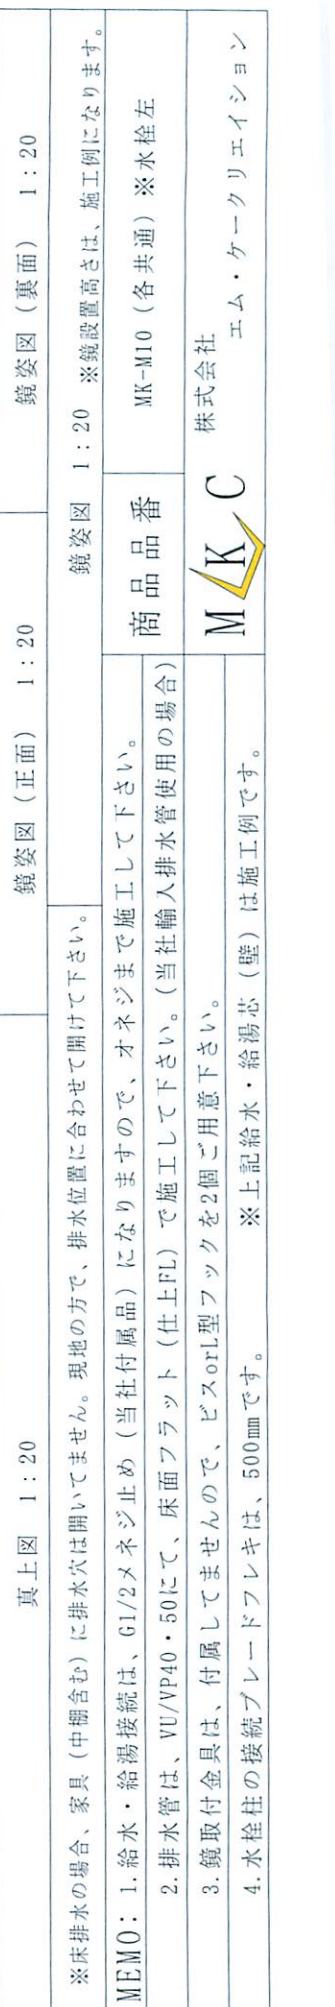 真上図　1:20
鏡姿図（正面）　1:20
鏡姿図（裏面）　1:20
※床排水の場合、家具（中棚含む）に排水穴は開いてません。現地の方で、排水位置に合わせて開けて下さい。
鏡姿図　1:20　※鏡設置高さは、施工例になります。
MEMO: 1.給水・給湯接続は、G1/2メネジ止め（当社付属品）になりますので、オネジまで施工して下さい。
2.排水管は、VU/VP40・50にて、床面フラット（仕上FL）で施工して下さい。（当社輸入排水管使用の場合）
3.鏡取付金具は、付属してませんので、ビスorL型フックを2個ご用意下さい。
4.水栓柱の接続ブレードフレキは、500㎜です。　※上記給水・給湯芯（壁）は施工例です。
商品品番
MK-M10（各共通）※水栓左
M K C
株式会社
エム・ケークリエイション